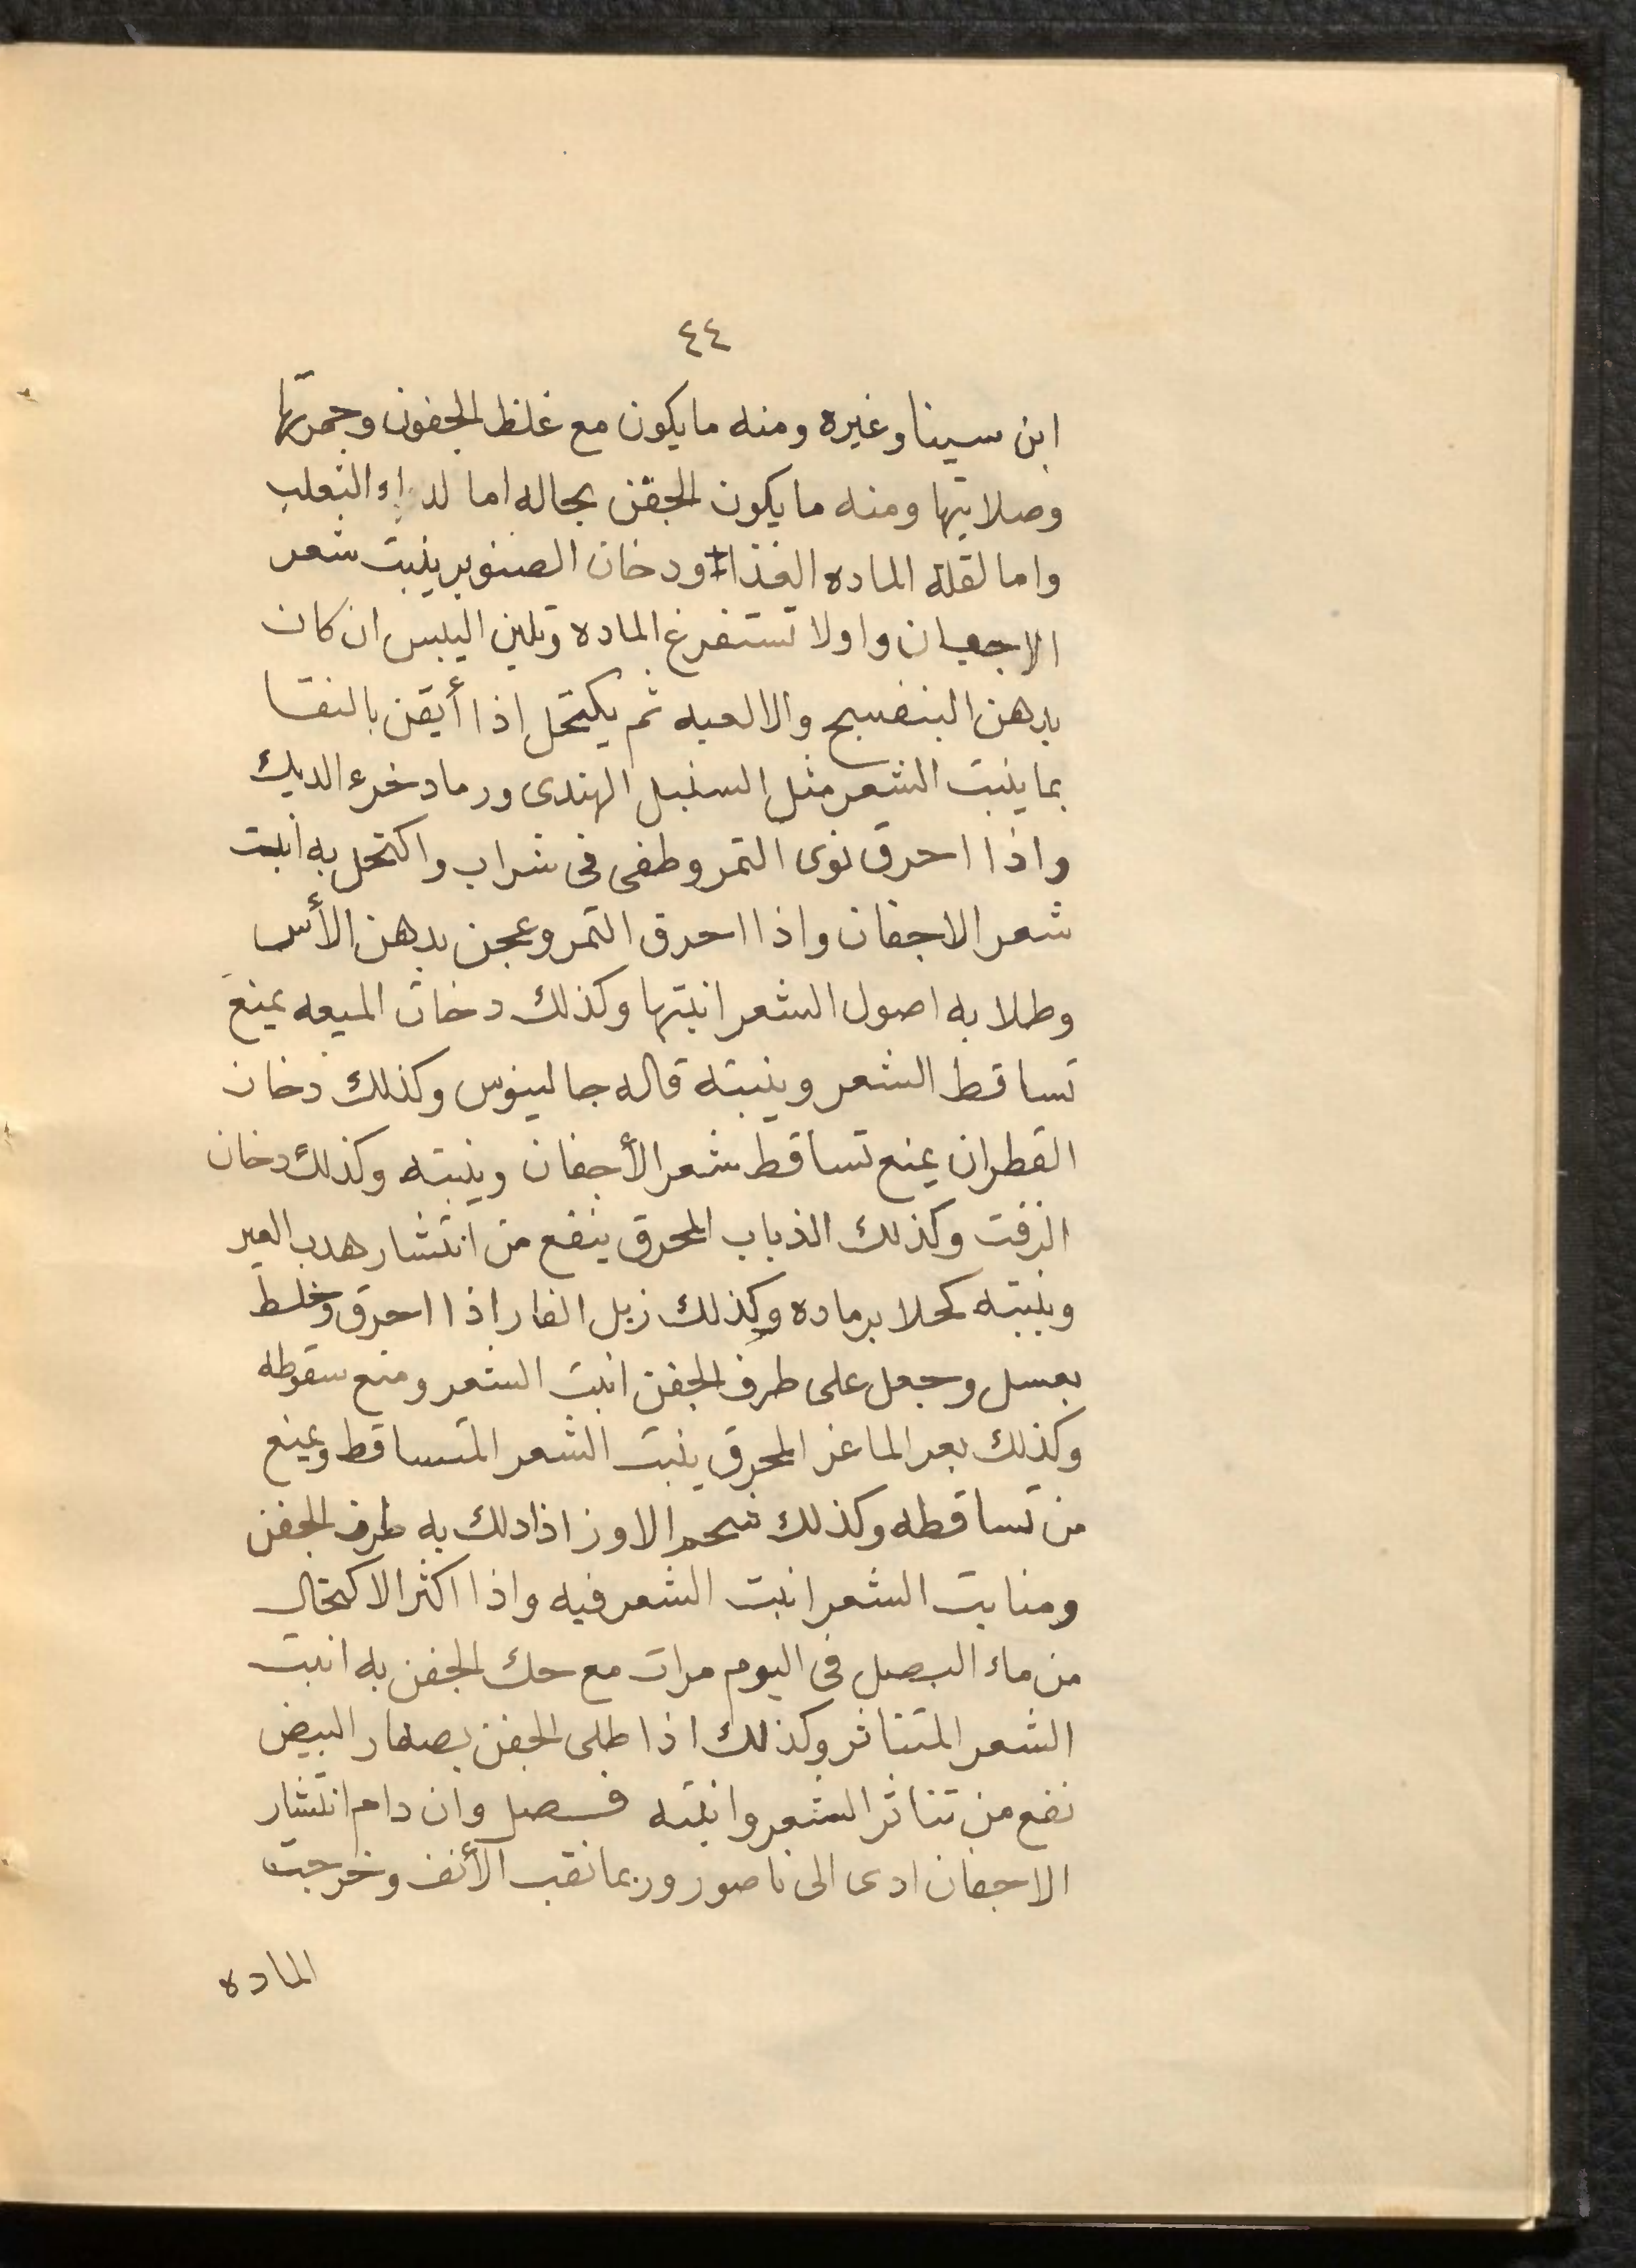 ٤٤
ابن سينا وغيره ومنه ما يكون مع غلظ الجفون وحمرتها
وصلابتها ومنه ما يكون الجفن بحاله اما لداء الثعلب
واما لقلة الماده الغذاء ودخان الصنوبر ينبت شعر
الاجفان واولا تستفرغ الماده وتلين اليبس ان كان
بدهن البنفسج والالعبه ثم يكتحل إذا أيقن بالنقا
بما ينبت الشعر مثل السنبل الهندى ورماد خرء الديك
واذا احرق نوى التمر وطفى فى شراب واكتحل به انبت
شعر الاجفان واذا احرق التمر وعجن بدهن الأس
وطلا به اصول الشعر انبتها وكذلك دخان الميعه يمنع
تساقط الشعر وينبته قاله جالينوس وكذلك دخان
القطران يمنع تساقط شعر الأجفان وينبته وكذلك دخان
الزفت وكذلك الذباب المحرق ينفع من انتشار هدب العين
وينبته كحلا برماده وكذلك زبل الفار اذا احرق وخلط
بعسل وجعل على طرف الجفن انبت الشعر ومنع سقوطه
وكذلك بعر الماعز المحرق ينبت الشعر المتساقط ويمنع
من تساقطه وكذلك شحم الاوز اذا دلك به طرف الجفن
ومنابت الشعر انبت الشعر فيه واذا اكثر الاكتحال
من ماء البصل فى اليوم مرات مع حك الجفن به انبت
الشعر المتناثر وكذلك اذا طلى الجفن بصفار البيض
نفع من تناثر الشعر وانبته فصل وان دام انتشار
الاجفان ادى الى ناصور وربما نقب الأنف وخرجت
الماده